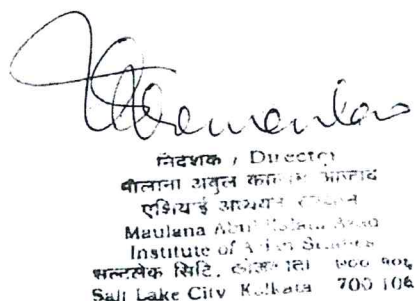 निदेशक / Director
मौलाना अबुल कलाम आजाद
एशियाई अध्ययन संस्थान
Maulana Abul Kalam Azad
Institute of Asian Studies
सल्टलेक सिटि,
Salt Lake City Kolkata 700 106